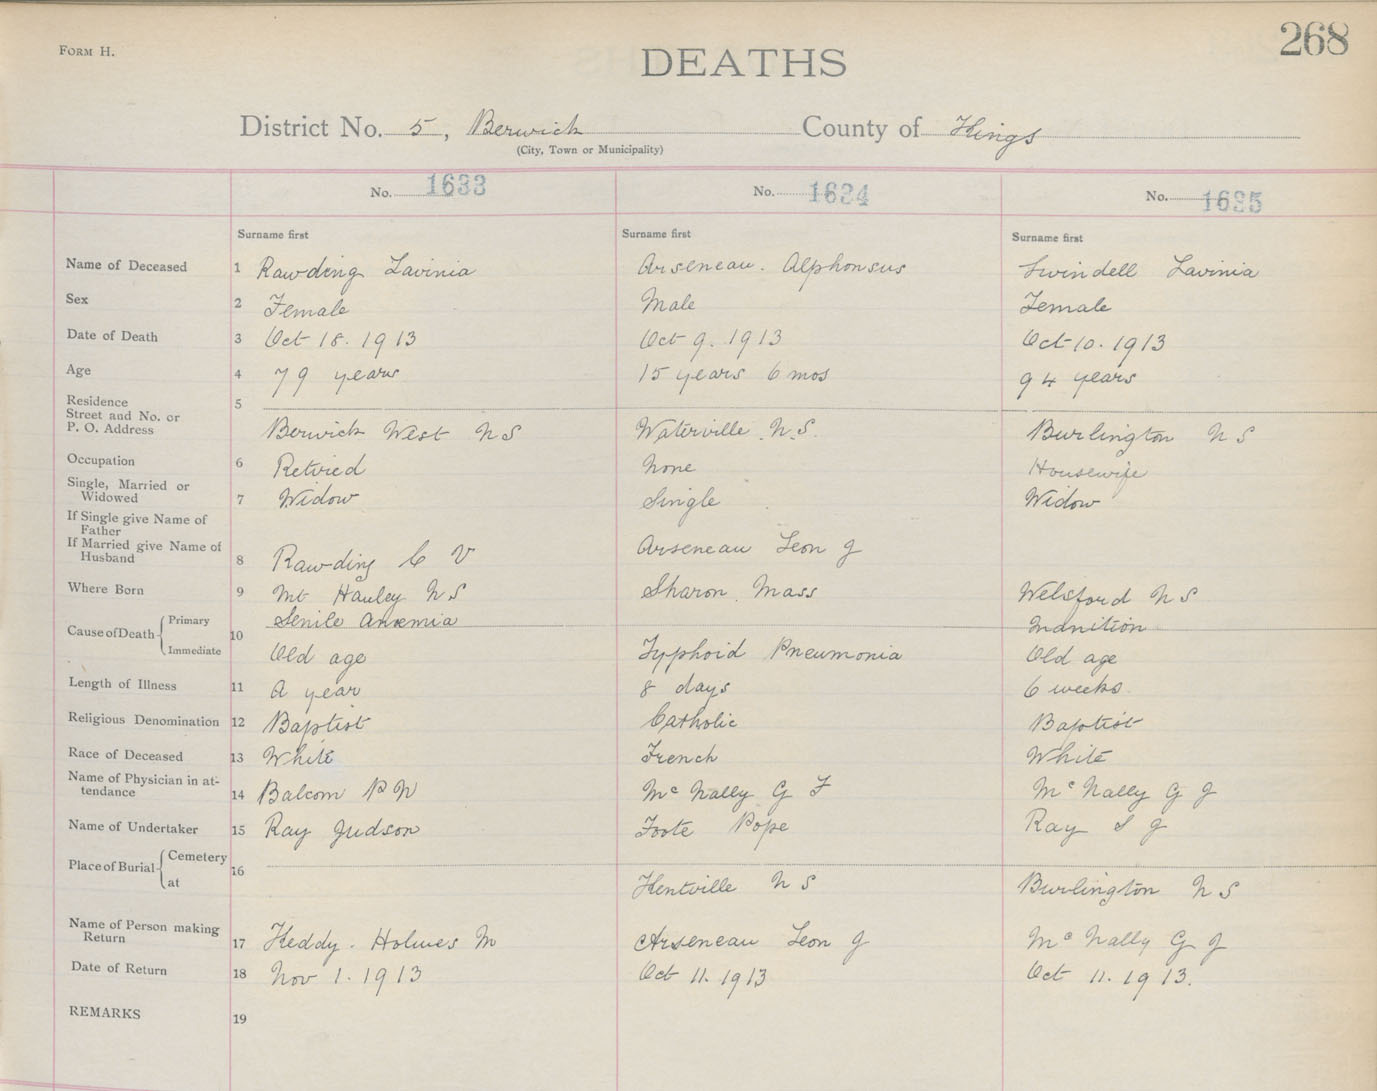 FORM H.
268
DEATHS
District No. 5, Berwick County of Kings
(City, Town or Municipality)
No. 1633 No. 1634 No. 1635
Surname first Surname first Surname first
Name of Deceased 1 Rawding Lavinia Arseneau. Alphonsus Swindell Lavinia
Sex 2 Female Male Female
Date of Death 3 Oct 18. 1913 Oct 9. 1913 Oct 10. 1913
Age 4 79 years 15 years 6 mos 94 years
Residence 5
Street and No. or
P. O. Address Berwick West N S Waterville N.S. Burlington N S
Occupation 6 Retired None Housewife
Single, Married or
Widowed 7 Widow Single Widow
If Single give Name of
Father
If Married give Name of
Husband 8 Rawding C V Arseneau Leon J
Where Born 9 Mt Hanley N S Sharon Mass Welsford N S
Cause of Death Primary 10 Senile Anaemia Inanition
Immediate Old age Typhoid Pneumonia Old age
Length of Illness 11 A year 8 days 6 weeks
Religious Denomination 12 Baptist Catholic Baptist
Race of Deceased 13 White French White
Name of Physician in at-
tendance 14 Balcom P N McNally G J McNally G J
Name of Undertaker 15 Ray Judson Foote Pope Ray S J
Place of Burial Cemetery 16
at Kentville N S Burlington N S
Name of Person making
Return 17 Keddy. Holmes M Arseneau Leon J McNally G J
Date of Return 18 Nov 1. 1913 Oct 11. 1913 Oct 11. 1913.
REMARKS 19